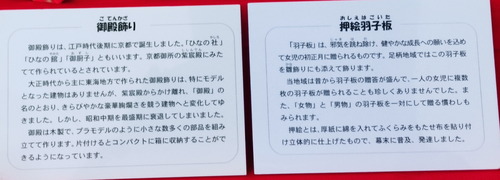 ごてんかざ
御殿飾り
御殿飾りは、江戸時代後期に京都で誕生しました。「ひなの社」
「ひなの館」「御厨子」ともいいます。京都御所の紫宸殿にみた
てて作られているとされています。
大正時代から主に東海地方で作られた御殿飾りは、特にモデル
となった建物はありませんが、紫宸殿からかけ離れ、「御殿」の
名のとおり、きらびやかな豪華絢爛さを競う建物へと変化してゆ
きました。しかし、昭和中期を最盛期に衰退してしまいました。
御殿は木製で、プラモデルのように小さな数多くの部品を組み
立てて作ります。片付けるとコンパクトに箱に収納することがで
きるようになっています。
おしえはごいた
押絵羽子板
「羽子板」は、邪気を跳ね除け、健やかな成長への願いを込め
て女児の初正月に贈られるものです。足柄地域ではこの羽子板
を雛飾りにも添えて飾ります。
当地域は昔から羽子板の贈答が盛んで、一人の女児に複数
枚の羽子板が贈られることも珍しくありませんでした。ま
た、「女物」と「男物」の羽子板を一対にして贈る慣わしも
みられます。
押絵とは、厚紙に綿を入れてふくらみをもたせ布を貼り付
け立体的に仕上げたもので、幕末に普及、発達しました。